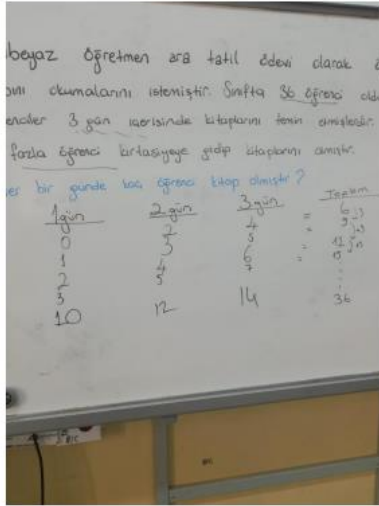 beyaz öğretmen ara tatil ödevi olarak
okumalarını istemiştir. Sınıfta 36 öğrenci
3 gün içerisinde kitaplarını temin etmişlerdir.
fazla öğrenci kırtasiyeye gidip kitaplarını almıştır.
bir günde kaç öğrenci kitap almıştır?
1 gün 2 gün 3 gün Toplam
0 2 4 = 6
1 3 5 = 9
2 4 6 = 12
3 5 7 = 15
10 12 14 36